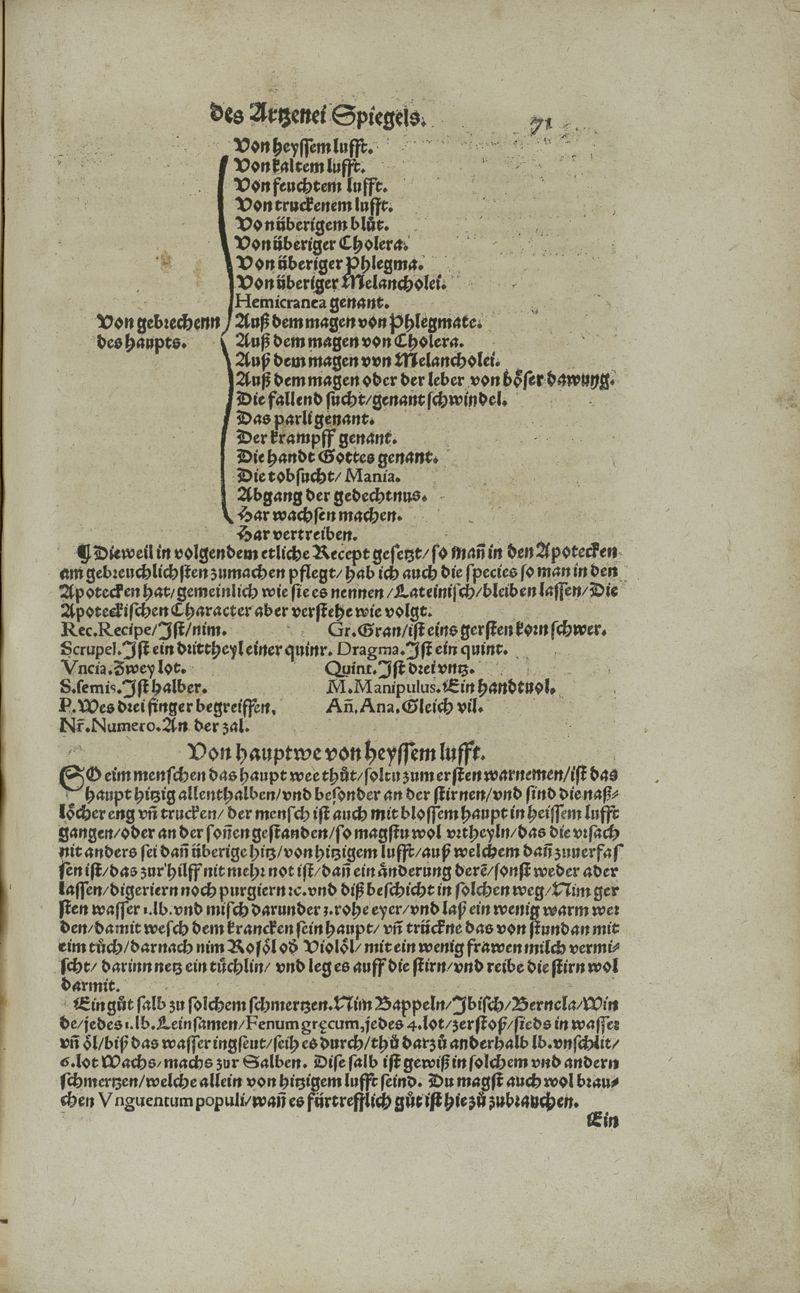 des Artzenei Spiegels. 71
Von heyssem lufft.
Von kaltem lufft.
Von feuchtem lufft.
Von truckenem lufft.
Von überigem blůt.
Von überiger Cholera.
Von überiger Phlegma.
Von überiger Melancholei.
Hemicranea genant.
Von gebrechenn des haupts.
Auß dem magen von Phlegmate.
Auß dem magen von Cholera.
Auß dem magen vvn Melancholei.
Auß dem magen oder der leber von böser dawung.
Die fallend sucht/genant schwindel.
Das parli genant.
Der krampff genant.
Die handt Gottes genant.
Die tobsucht/ Mania.
Abgang der gedechtnus.
Har wachsen machen.
Har vertreiben.
¶ Dieweil in volgendem etliche Recept gesetzt/so mañ in den Apotecken
am gebreuchlichsten zumachen pflegt/hab ich auch die species so man in den
Apotecken hat/gemeinlich wie sie es nennen/Lateinisch/bleiben lassen/Die
Apoteckischen Character aber verstehe wie volgt.
Rec.Recipe/Jst/nim. Gr.Gran/ist eins gersten korn schwer.
Scrupel.Jst ein drittheyl einer quinr. Dragma.Jst ein quint.
Vncia.Zwey lot. Quint.Jst drei vntz.
S.semis.Jst halber. M.Manipulus.Ein handtuol.
P.Wes drei finger begreiffen. Añ.Ana.Gleich vil.
Nr̃.Numero.An der zal.
Von hauptwe von heyssem lufft.
SO eim menschen das haupt wee thůt/soltu zum ersten warnemen/ist das
haupt hitzig allenthalben/vnd besonder an der stirnen/vnd sind die naß⸗
löcher eng vñ trucken/der mensch ist auch mit blossem haupt in heissem lufft
gangen/oder an der soñen gestanden/so magstu wol vrtheyln/das die vrsach
nit anders sei dañ überige hitz/von hitzigem lufft/auß welchem dañ zuuerfas
sen ist/das zur hilff nit mehr not ist/dañ ein änderung derẽ/sonst weder ader
lassen/digeriern noch purgiern ⁊c.vnd diß beschicht in solchen weg/Nim ger
sten wasser 1.lb.vnd misch darunder 3.rohe eyer/vnd laß ein wenig warm wer
den/damit wesch dem krancken sein haupt/ vñ trückne das von stund an mit
eim tůch/darnach nim Rosöl od̃ Violöl/mit ein wenig frawen milch vermi⸗
scht/ darinn netz ein tůchlin/ vnd leg es auff die stirn/vnd reibe die stirn wol
darmit.
Ein gůt salb zu solchem schmertzen.Nim Bappeln/Jbisch/Berncla/Win
de/jedes 1.lb.Leinsamen/Fenum gręcum,jedes 4.lot/zerstoß/sieds in wasser
vñ öl/biß das wasser ingseut/seih es durch/thů darzů anderhalb lb.vnschlit/
6.lot Wachs/machs zur Salben. Dise salb ist gewiß in solchem vnd andern
schmertzen/welche allein von hitzigem lufft seind. Du magst auch wol brau⸗
chen Vnguentum populi/wañ es fürtrefflich gůt ist hie zů zubrauchen.
Ein